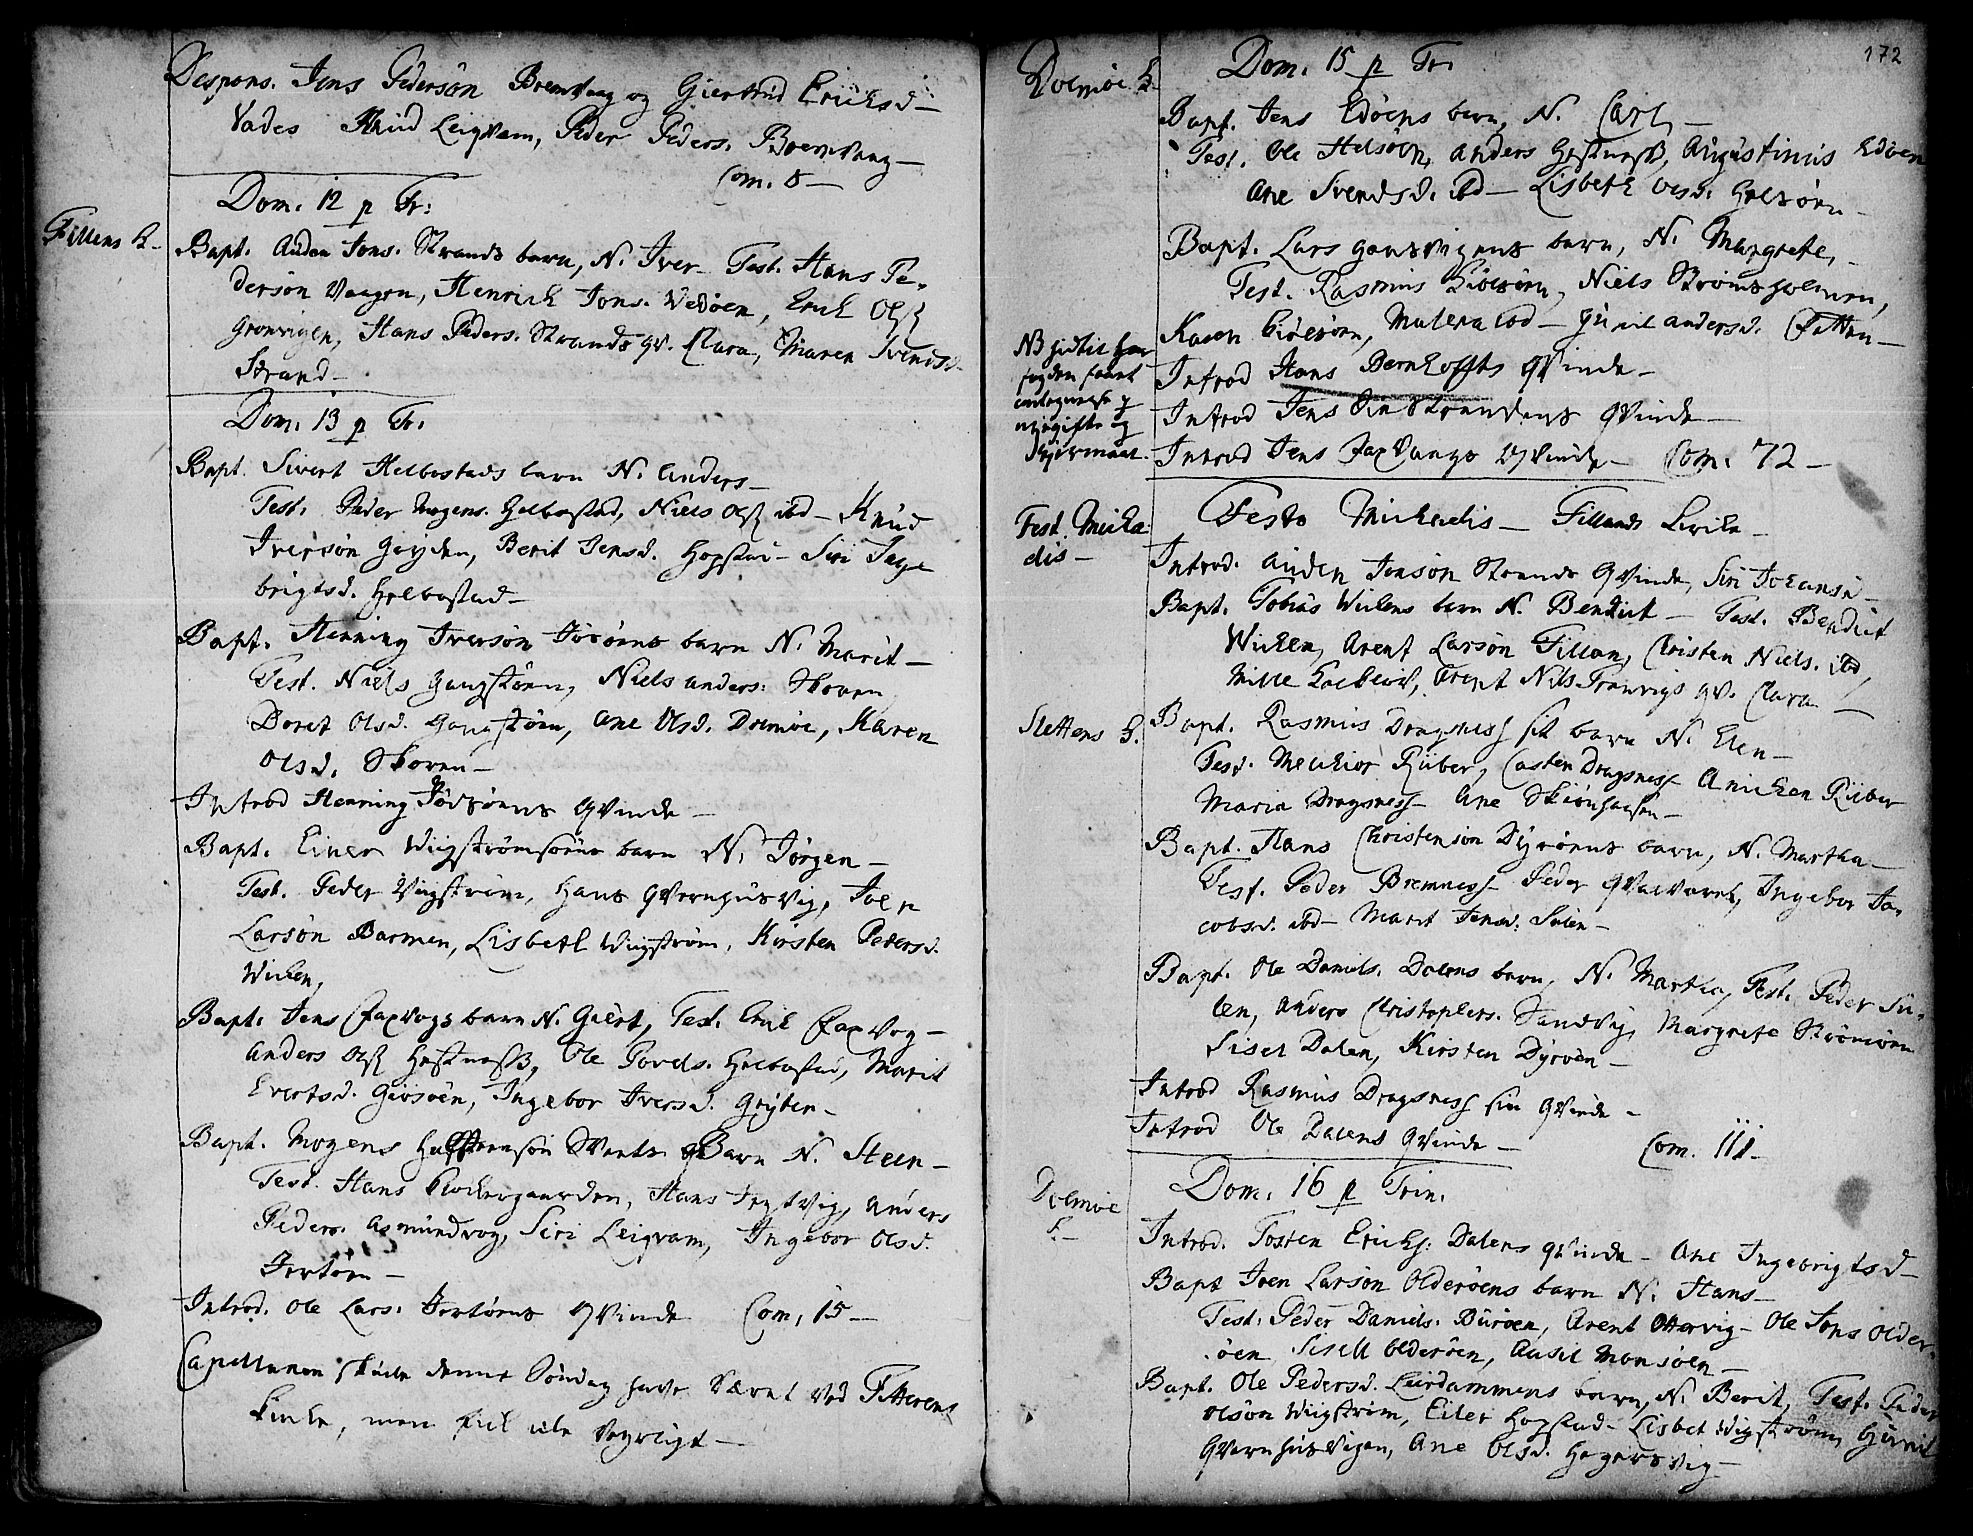 Despons. Jens Pedersøn Bremvaag og Giertrud Ericksd.
Vades Knud Leigvam, Peder Peders. Bremvaag
Com. 8
Dom. 12 p Tr:
Fillens K.
Bapt. Auden Jons. Strands barn, N. Iver. Test. Hans Pe-
dersøn Vaagen, Henrich Jons. Vedøen, Erich Ols.
Grønvigen, Hans Peders. Strands qv. Clara, Maren Svends.
Strand
Dom. 13 p Tr.
Bapt. Sivert Helbostads barn N. Anders
Test. Peder Mogens. Helbostad, Niels Ols. ibd Knud
Iversøn Gryten, Berit Jensd. Hopstad Siri Inge
brigtsd. Helbostad
Bapt. Henning Iversøn barn N. Marit
Test. Niels Gangstøen, Niels Anders. Skoren
Doret Olsd. Gangstøen, Ane Olsd. Dolmøe, Karen
Olsd. Skoren
Introd Henning qvinde
Bapt. Einer Wigstrøms barn N. Jørgen
Test. Peder Wigstrøm, Hans Qvernhusvig, Joen
Larsøn Barmen, Lisbeth Wigstrøm, Kirsten Pedersd.
Wiken,
Bapt. Jens Faxvogs barn N. Giert, Test. Erik Faxvog
Anders Ols. Hestness, Ole Povels. Helbostad, Marit
Evertsd. Giøsøen, Ingebor Iversd. Gryten
Bapt. Mogens Barn N. Steen
Test. Hans Klockergaarden, Hans, Anders
Peders. Asmundvog, Siri Leigvam, Ingebor Olsd.
Jertøen
Introd. Ole Lars. Jertøens qvinde Com. 15
Capellanen skulde denne Søndag have været ved Titterens
Kirke, men fik icke
172
Dolmøe K.
Dom. 15 p Tr.
Bapt. Jens Edøens barn, N. Carl
Test. Ole Helsøen, Anders Hestness, Augustinus Edøen
Ane Svendsd. ibd Lisbeth Olsd. Helsøen
Bapt. Lars barn, N. Margrete,
Test. Rasmus, Niels Strømsholmen,
Karen, Malena ibd Gunil Andersd. Fetten
Introd Hans Bernhofts qvinde
Introd Jens Strandens qvinde
Introd Jens Faxvaags qvinde Com. 72
NB
Fest. Micha
elis
Festo Michaelis Fillands Kircke
Introd. Auden Jonsøn Strands qvinde, Siri Johansd.
Bapt. Tobias Wikens barn N. Bendict Test. Bendict
Wiken, Arent Larsøn Fillan, Christen Niels. ibd,
Mille, Arent Nils qv. Clara
Slettens K.
Bapt. Rasmus Dragsness sit barn N. Elen
Test. Melchior Rüber, Casten Dragsness Aniken Rüber
Maria Dragsness Ane
Bapt. Hans Christensøn Dyrøens barn, N. Martha
Test. Peder Bremness Peder Qvalvaret, Ingebor Ja-
cobsd. ibd Marit Jensd. Sulen
Bapt. Ole Daniels. Dalens barn, N. Martha, Test. Peder Su-
len, Anders Christophers. Sandvig, Margrete Strømøen
Sisel Dalen, Kirsten Dyrøen
Introd Rasmus Dragsness sin qvinde
Introd Ole Dalens qvinde Com. 111
Dolmøe
K.
Dom. 16 p Trin.
Introd. Tosten Ericks. Dalens qvinde Ane Ingebrigtsd
Bapt Joen Larsøn Olderøens barn N. Hans
Test. Peder Daniels. Burøen, Arent Ottervig Ole Jons Older-
øen Sisell Olderøen, Ausil Monsøen
Bapt. Ole Peders. Leirdammens barn, N. Berit, Test. Peder
Olsøn Wigstrøm, Eiler Hopstad Lisbet Wigstrøm,
Qvernhusvigen, Ane Olsd. Hegersvig